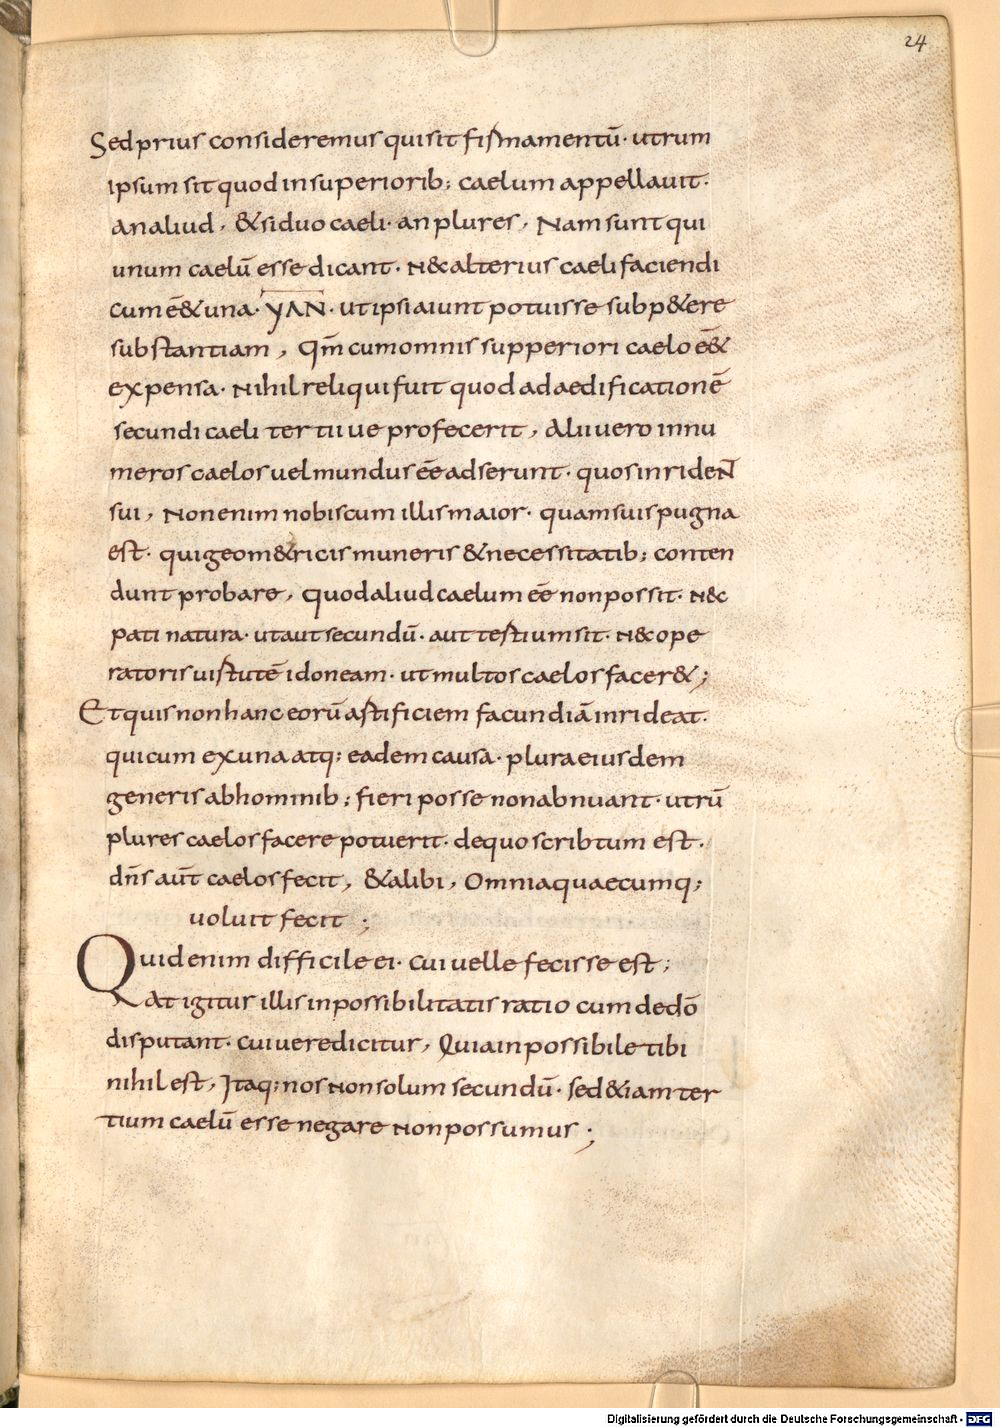 24
Sed prius consideremus qui sit firmamentū· utrum
ipsum sit quod in superiorib; caelum appellauit·
an aliud, & si duo caeli· an plures, Nam sunt qui
unum caelū esse dicant· n&c alterius caeli faciendi
cum ē& una· YΛN· ut ipsi aiunt potuisse subp&ere
substantiam, Qm̄ cum omnis supperiori caelo ē&
expensa· nihil reliqui fuit quod ad aedificationē
secundi caeli tertii ue profecerit, Alii uero innu
meros caelos uel mundus eē adserunt· quos inrideN̄
sui, Non enim nobiscum illis maior· quam suis pugna
est· qui geom&ricis muneris & necessitatib; conten
dunt probare, Quod aliud caelum eē non possit· n&c
pati natura· ut aut secundū· aut testium sit· n&c ope
ratoris uirtutē idoneam· ut multos caelos facer&;
Et quis non hanc eorū artificiem facundiā inrideat·
qui cum ex una atq; eadem causa· plura eiusdem
generis ab hominib; fieri posse non abnuant· utrū
plures caelos facere potuerit· de quo scribtum est·
dn̄s aūt caelos fecit, & alibi, Omnia quaecumq;
uoluit fecit;
Quid enim difficile ei· cui uelle fecisse est;
At igitur illis inpossibilitatis ratio cum de dō
disputant· cui uere dicitur, Quia inpossibile tibi
nihil est, Itaq; nos non solum secundū· sed &iam ter
tium caelū esse negare non possumus;
Digitalisierung gefördert durch die Deutsche Forschungsgemeinschaft - DFG